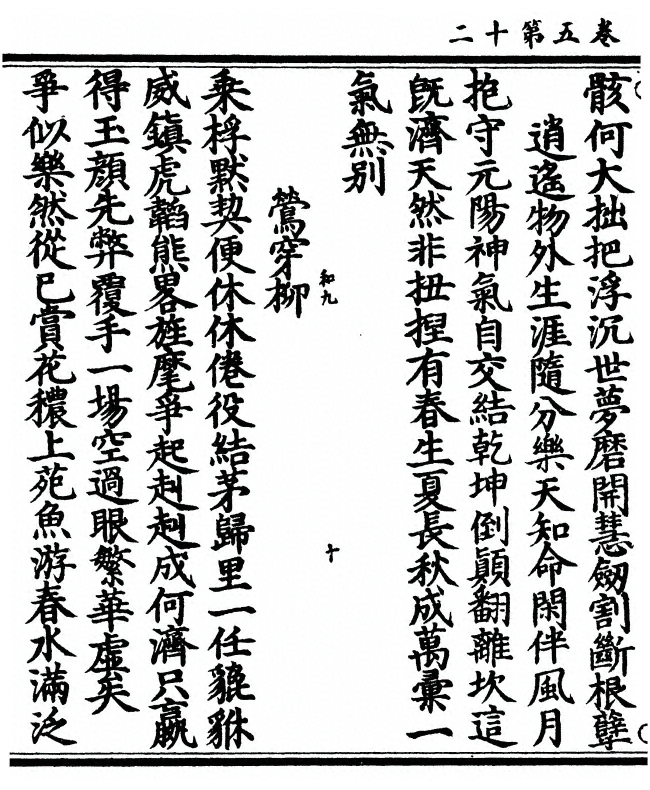 卷五第十二
骸何大拙把浮沉世夢磨開慧劔割斷根孽
逍遙物外生涯隨分樂天知命閑伴風月
抱守元陽神氣自交結乾坤倒顛翻離坎這
旣濟天然非扭捏有春生夏長秋成萬彙一
氣無別
和九
十
鶯穿柳
乘桴默契便休休倦役結茅歸里一任貔貅
威鎮虎韜熊畧旌麾爭起赳赳成何濟只贏
得玉顔先弊覆手一場空過眼繁華虛矣
爭似樂然從已賞花穠上苑魚游春水滿泛